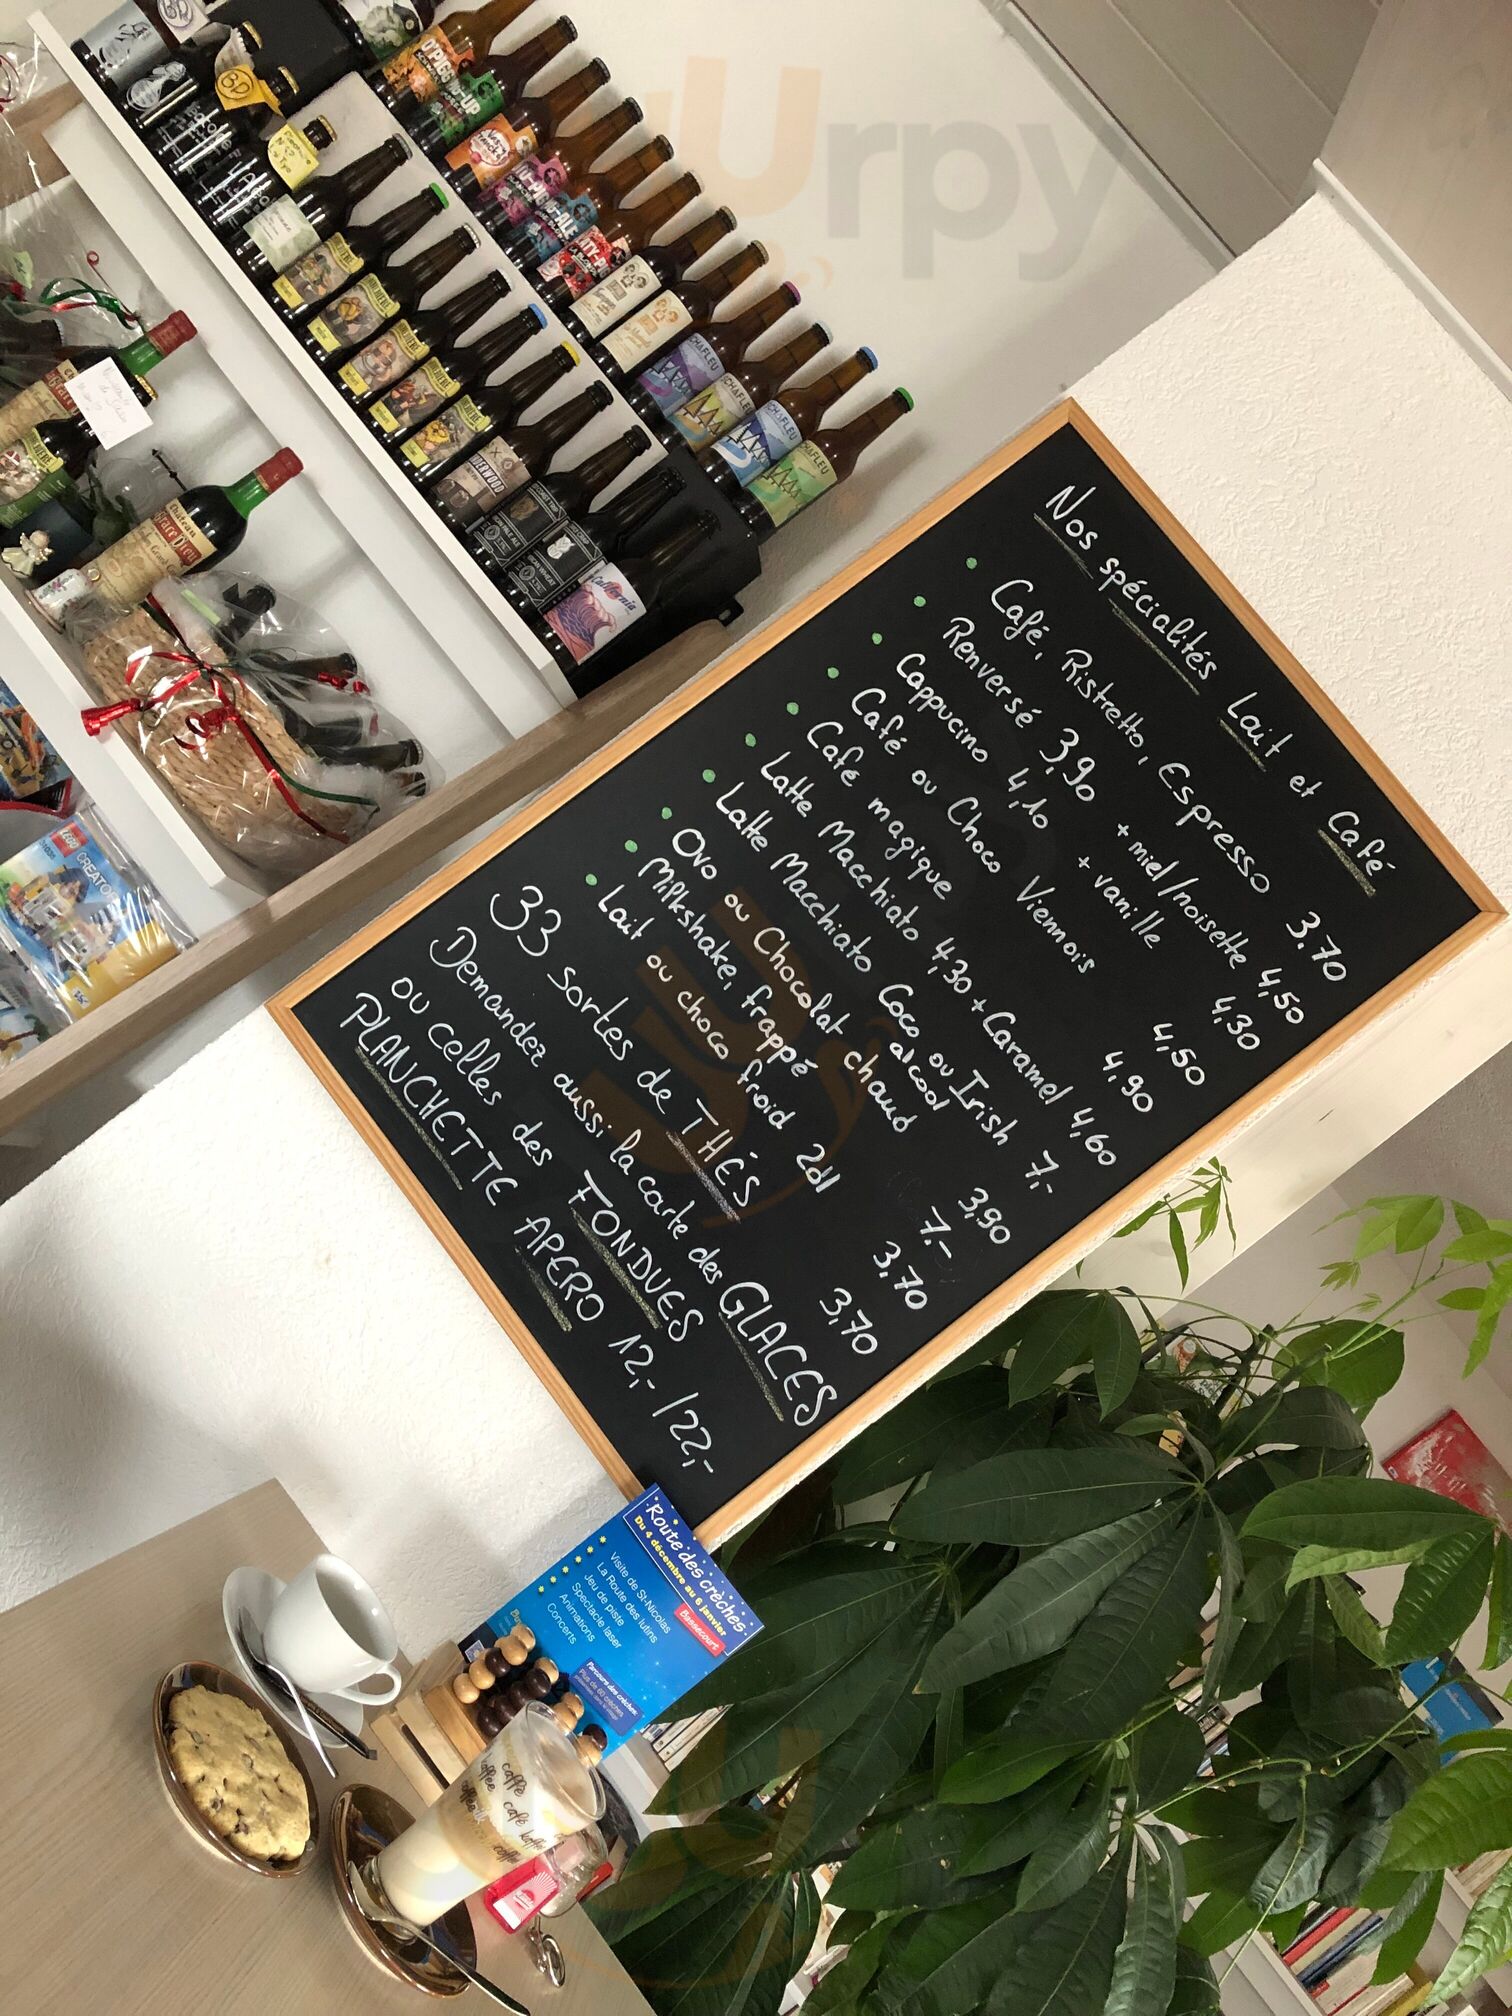 Nos spécialités Lait et Café
Café, Ristretto, Espresso 3.70
Renversé 3,90 + miel/noisette 4,50
Cappucino 4,10 + vanille 4,30
Café ou Choco Viennois 4,50
Café magique 4,90
Latte Macchiato 4,30 + Caramel 4,60
Latte Macchiato Coco ou Irish 7.-
alcool
Ovo ou Chocolat chaud 3,90
Milkshake, frappé 7.-
Lait ou choco froid 2dl 3,70
3,70
33 sortes de THÉS
Demandez aussi la carte des GLACES
ou celles des FONDUES
PLANCHETTE APERO 12,- / 22,-
Route des crèches
Du 4 décembre au 6 janvier
Bassecourt
Visite de St-Nicolas
La Route des lutins
Jeu de piste
Spectacle laser
Animations
Concerts
Parcours des crèches
Plus de 60 crèches
LEGO
CREATOR
Château
California
UNDERWOOD
CHAFLEU
CHAFLEU
CHAFLEU
CHAFLEU
PIG-ALE
BP
caffè
coffee
café
koffie
Urpy